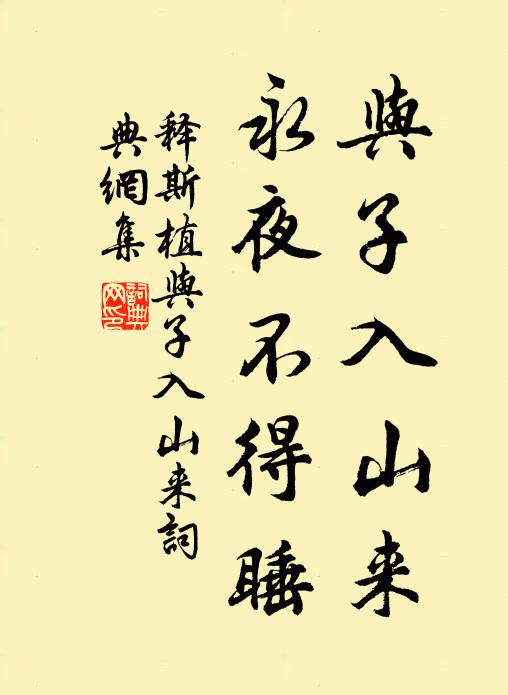 與子入山来
永夜不得睡
释斯植與子入山来詞
典網集
詞典
网印